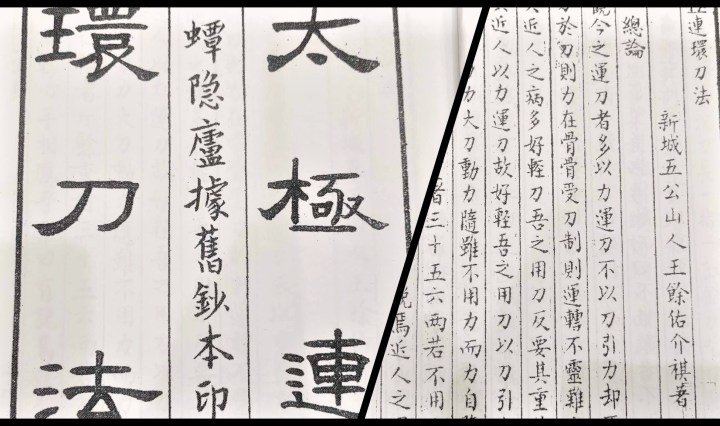 太極連
蟫隐廬據舊鈔本印
環刀法
連環刀法
新城五公山人王餘佑介祺著
總論
今之運刀者多以力運刀不以刀引力却
於刃則力在骨骨受刀制則運轉不靈雖
近人之病多好輕刀吾之用刀反要其重
近人以力運刀故好輕吾之用刀以刀引
力大刀動力隨雖不用力而力自
者三十五六兩若不用
焉近人之